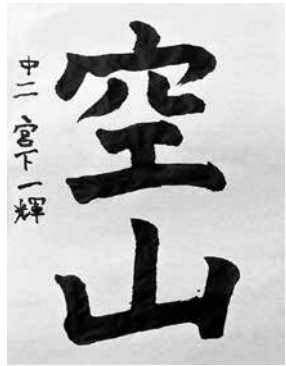 空山
中二 宮下一輝